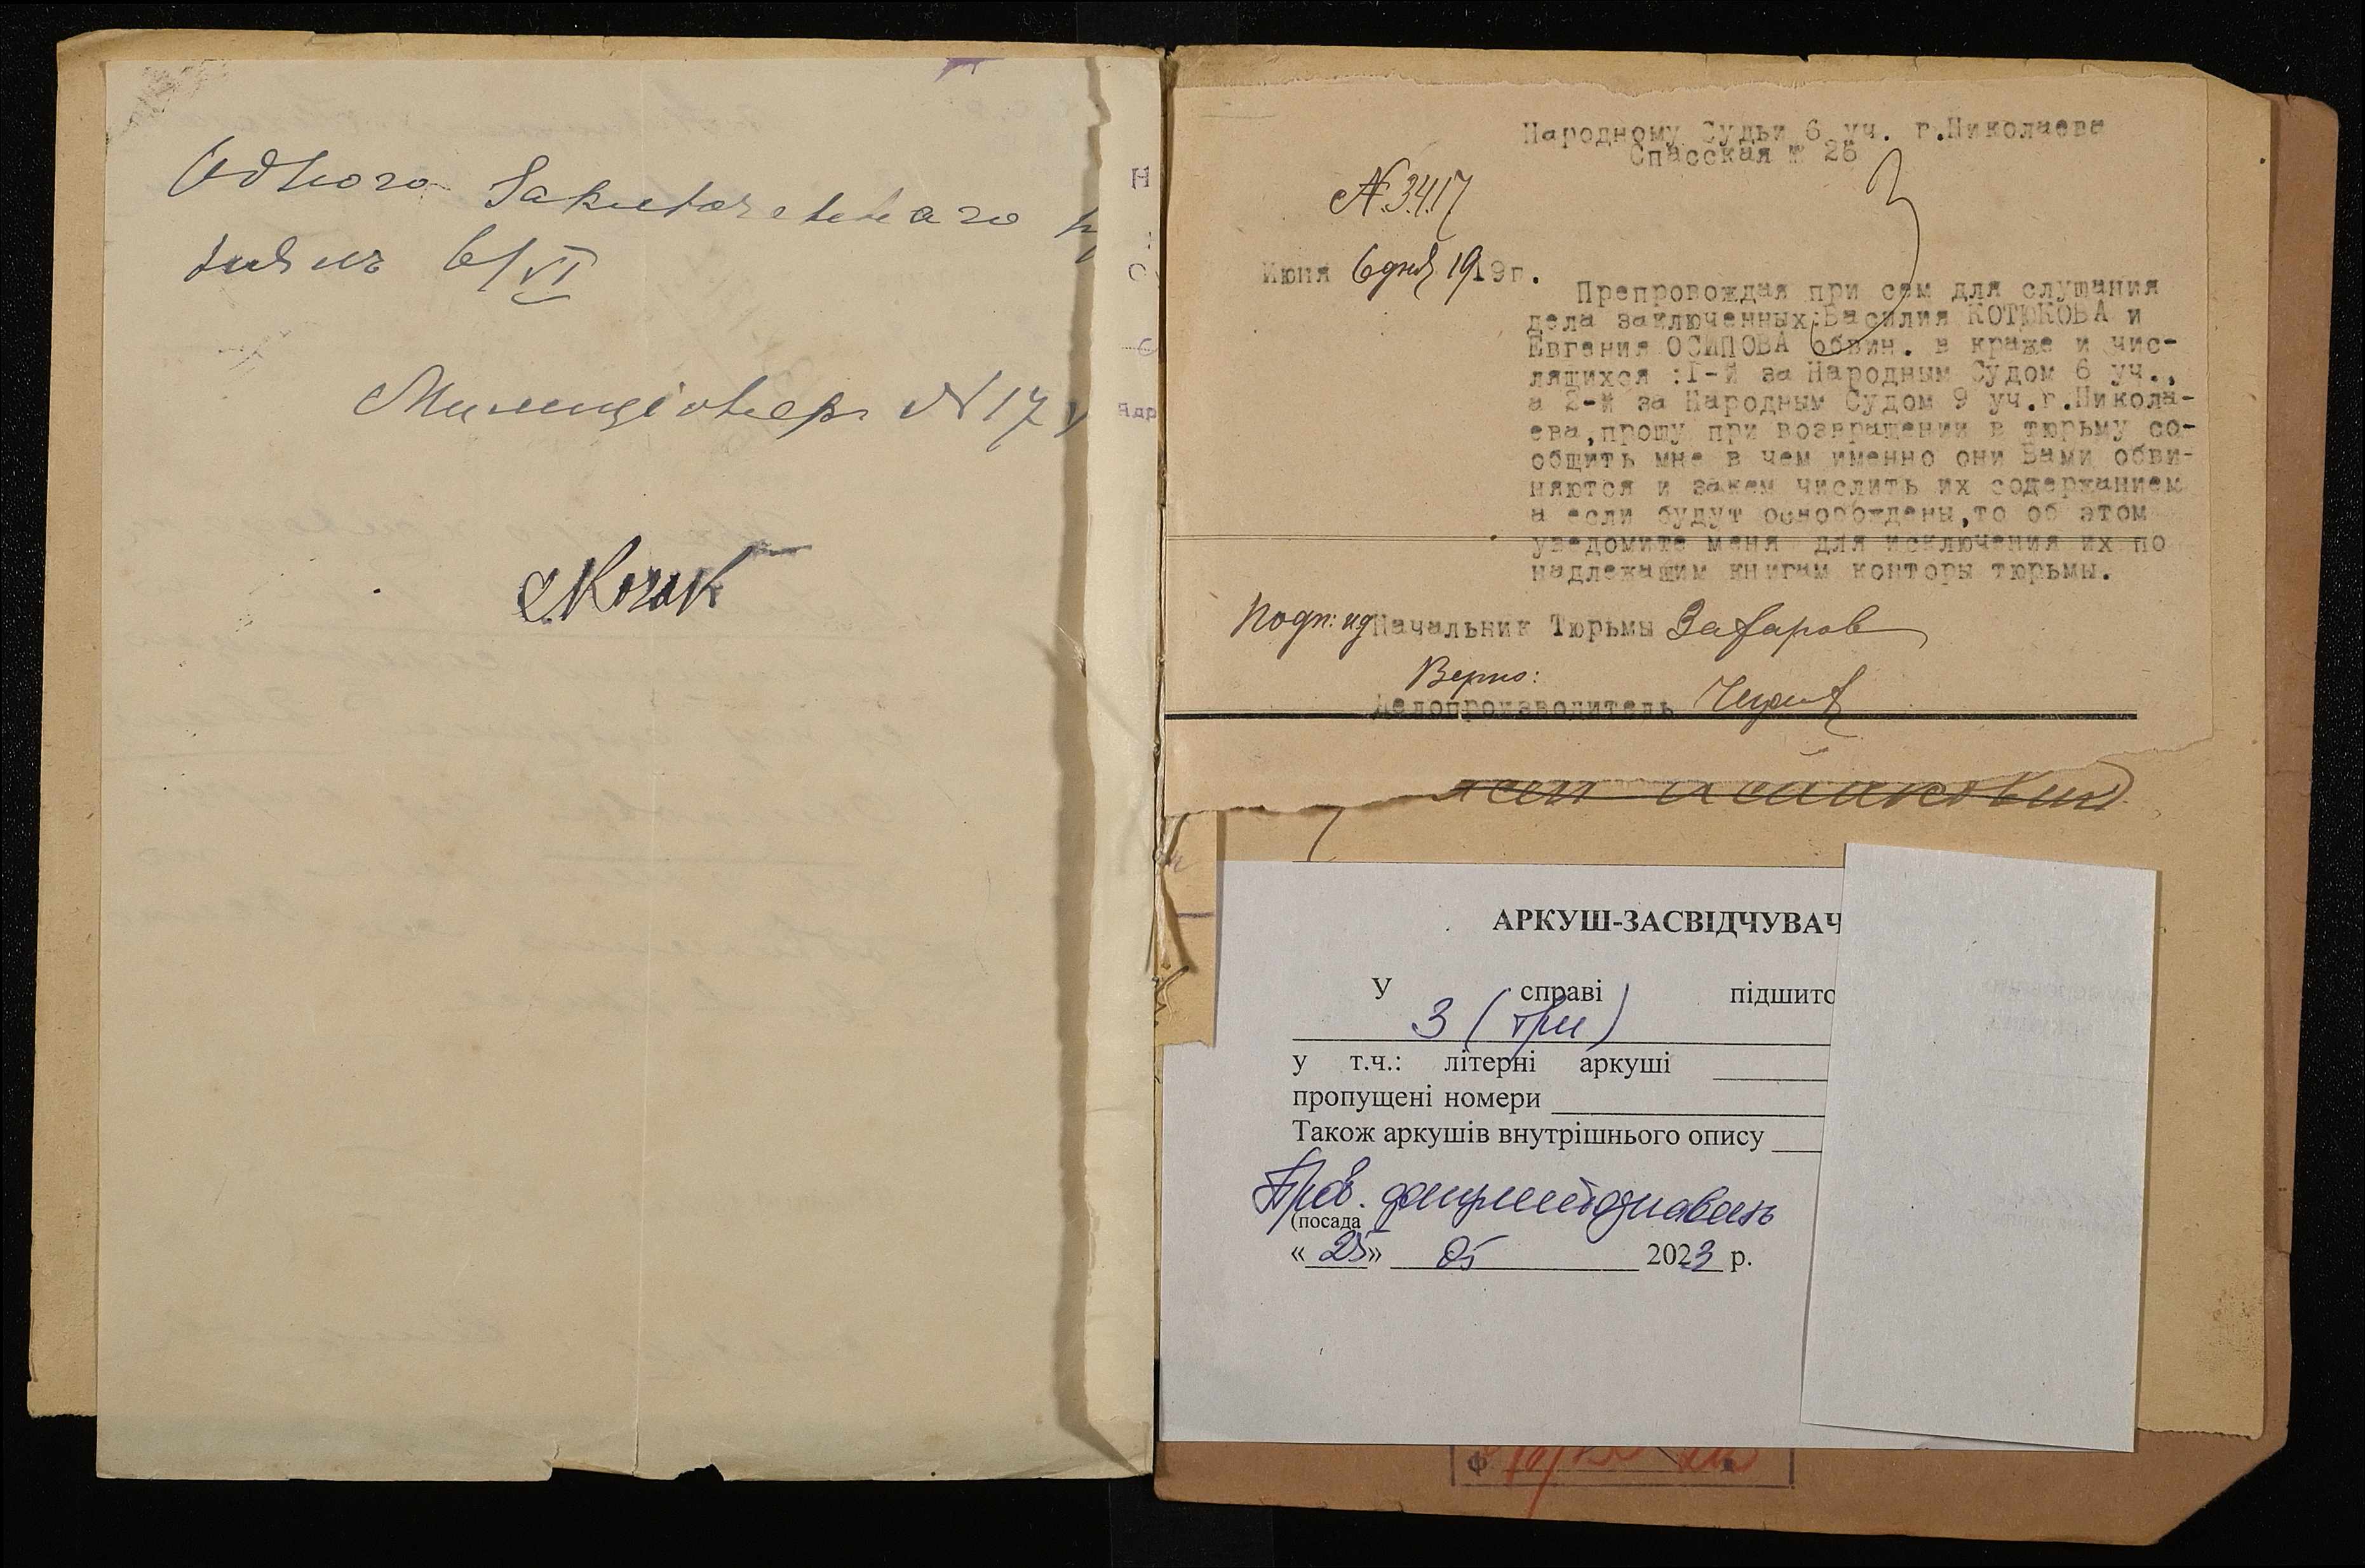 Одного Заключеннаго
6/VI
Милиціонеръ N 17
Народному Судьи 6 уч. г.Николаева
Спасская № 26
№ 3417
3
Июня 6 дня 1919г.
Препровождая при сем для слушания
дела заключенных:Василия КОТЮКОВА и
Евгения ОСИПОВА обвин. в краже и чис-
лящихся :I-й за Народным Судом 6 уч.,
а 2-й за Народным Судом 9 уч.г.Никола-
ева,прошу при возвращении в тюрьму со-
общить мне в чем именно они Вами обви-
няются и закем числить их содержанием
а если будут освобождены,то об этом
уведомите меня для исключения их по
надлежащим книгам конторы тюрьмы.
Подп: ид Начальник Тюрьмы
Верно:
Делопроизводитель
АРКУШ-ЗАСВІДЧУВАЧ
У справі підшито
3 (три)
у т.ч.: літерні аркуші
пропущені номери
Також аркушів внутрішнього опису
Пров. документознавець
(посада
«25» 05 2023 р.